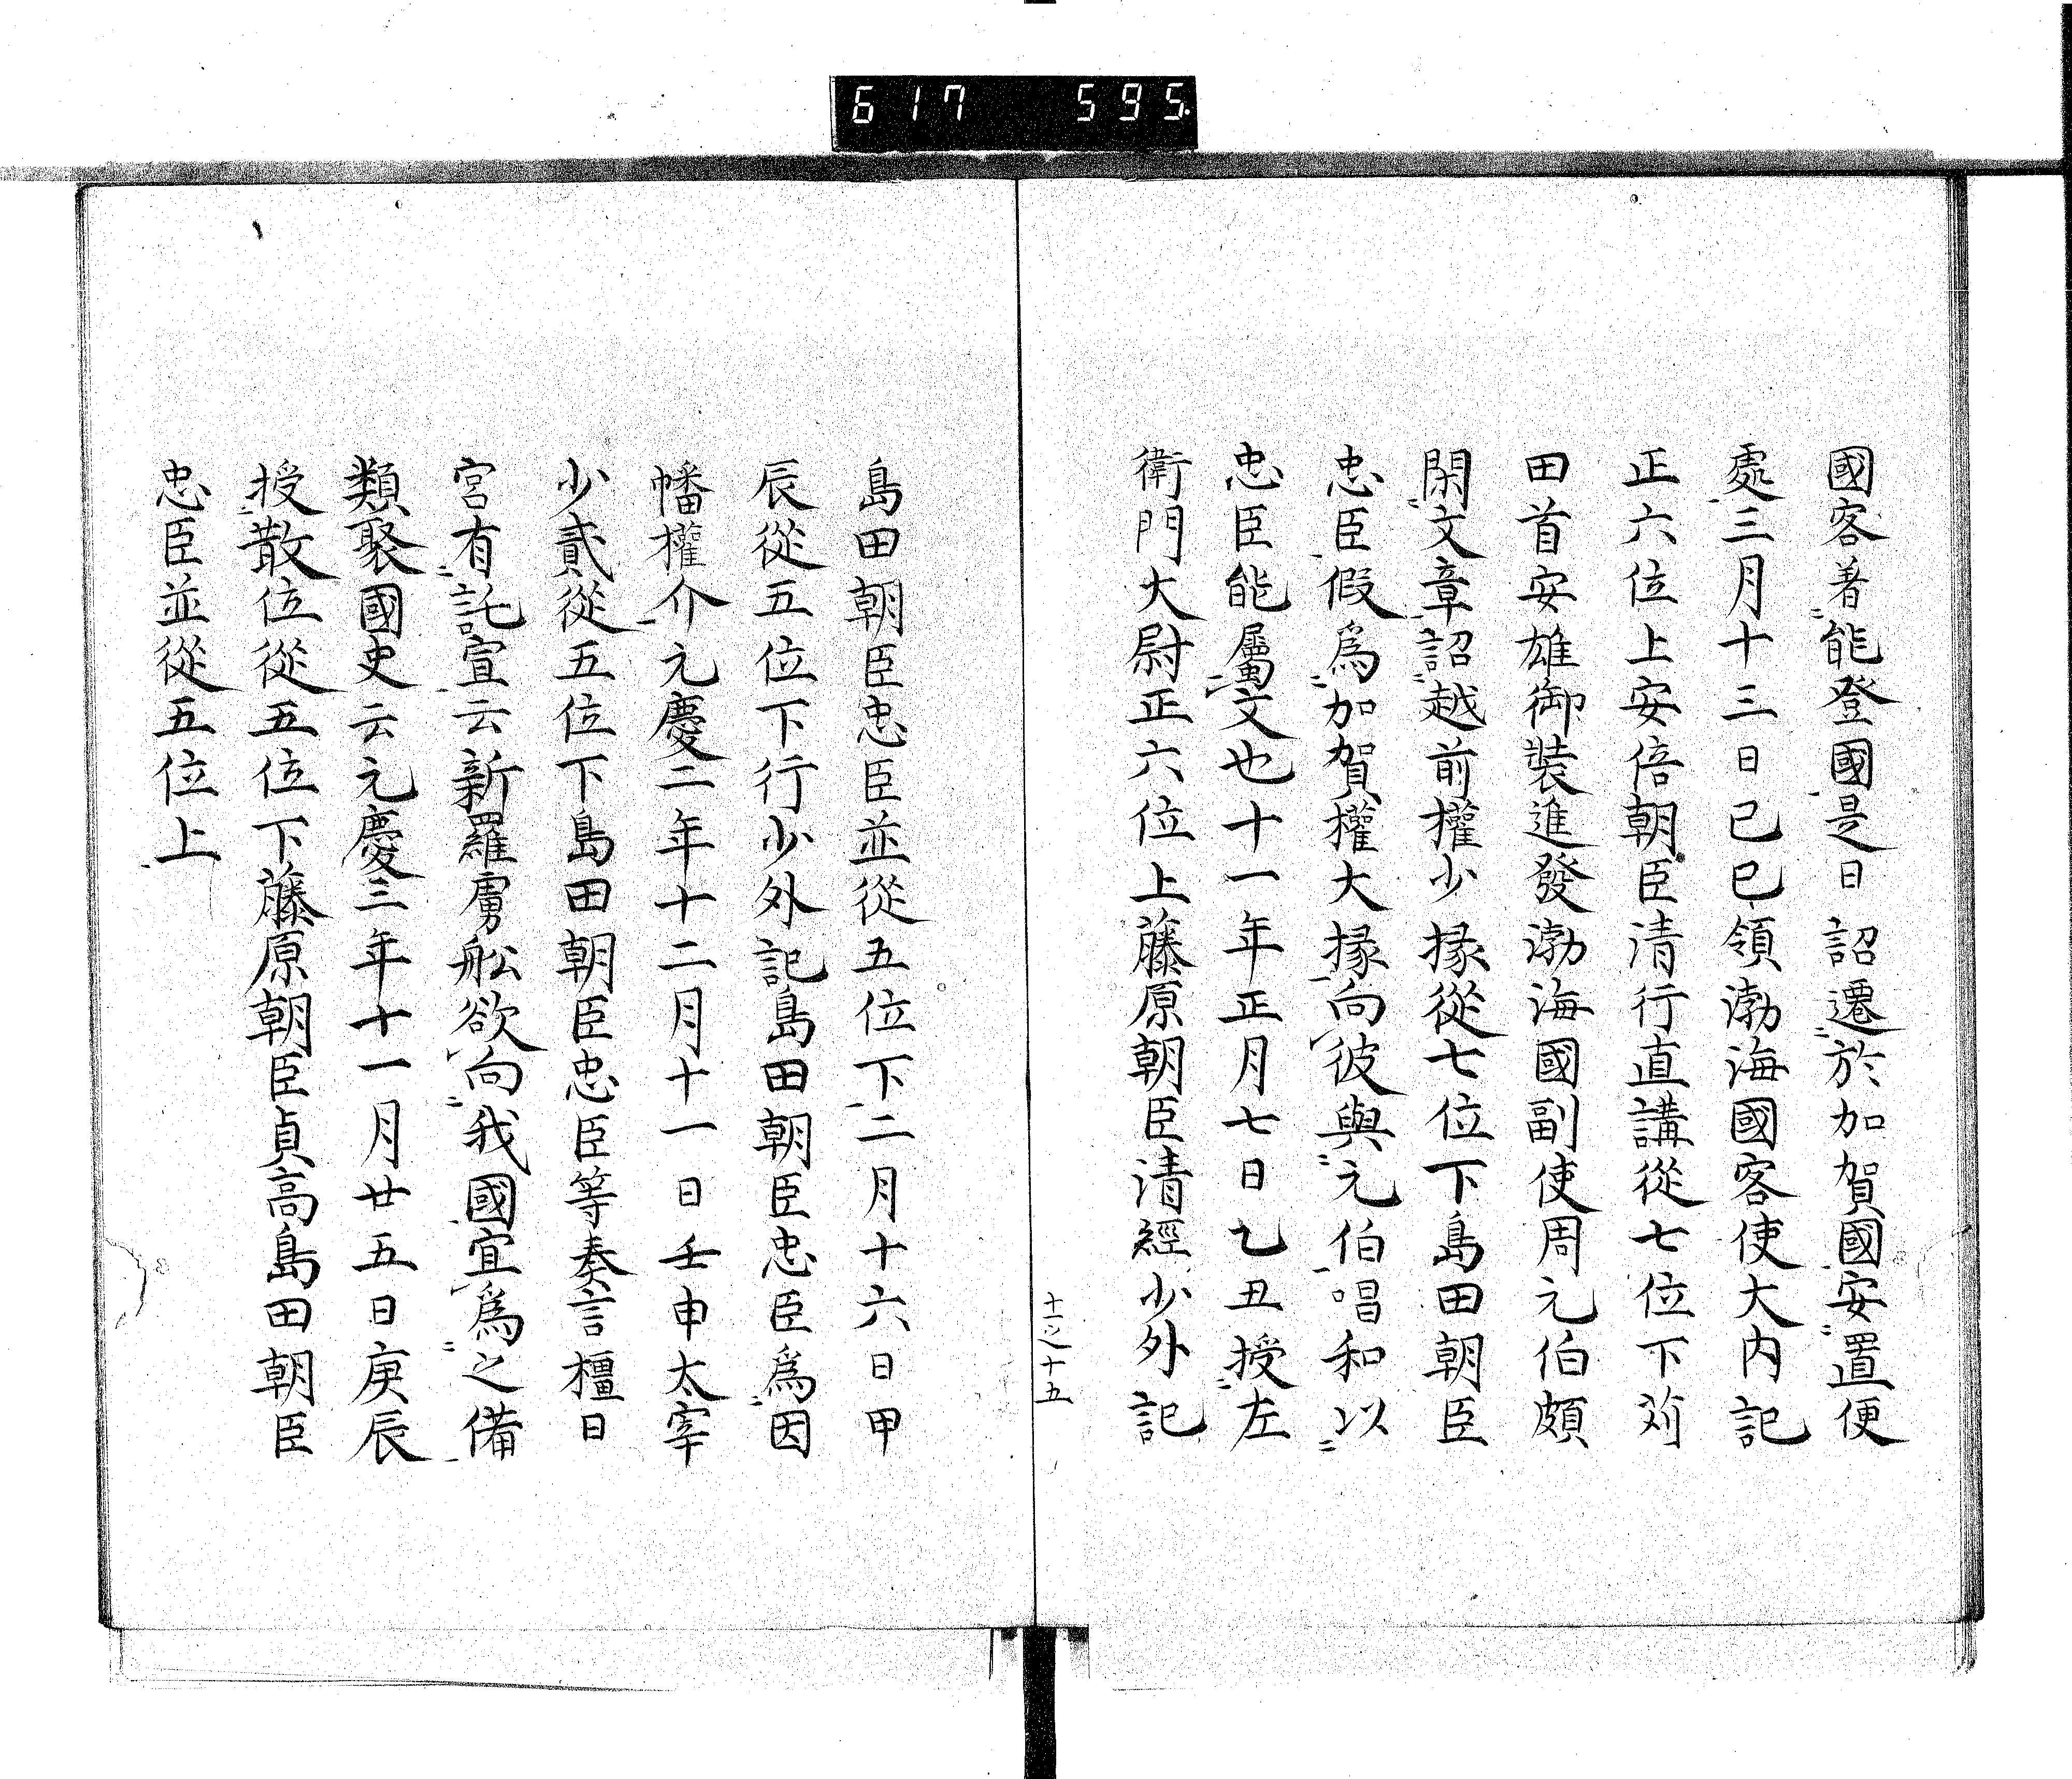 617 595
國客着能登國是日詔遷於加賀國安置便
處三月十三日己巳領渤海國客使大內記
正六位上安倍朝臣清行直講從七位下苅
田首安雄御裝進發渤海國副使周元伯頗
閑文章詔越前權少掾從七位下島田朝臣
忠臣假爲加賀權大掾向彼與元伯唱和以
忠臣能屬文也十一年正月七日乙丑授左
衛門大尉正六位上藤原朝臣清經少外記
十六之十五
島田朝臣忠臣並從五位下二月十六日甲
辰從五位下行少外記島田朝臣忠臣爲因
幡權介元慶二年十二月十一日壬申太宰
少貳從五位下島田朝臣忠臣等奏言橿日
宮有託宣云新羅虜舩欲向我國宜爲之備
類聚國史云元慶三年十一月廿五日庚辰
授散位從五位下藤原朝臣貞高島田朝臣
忠臣並從五位上